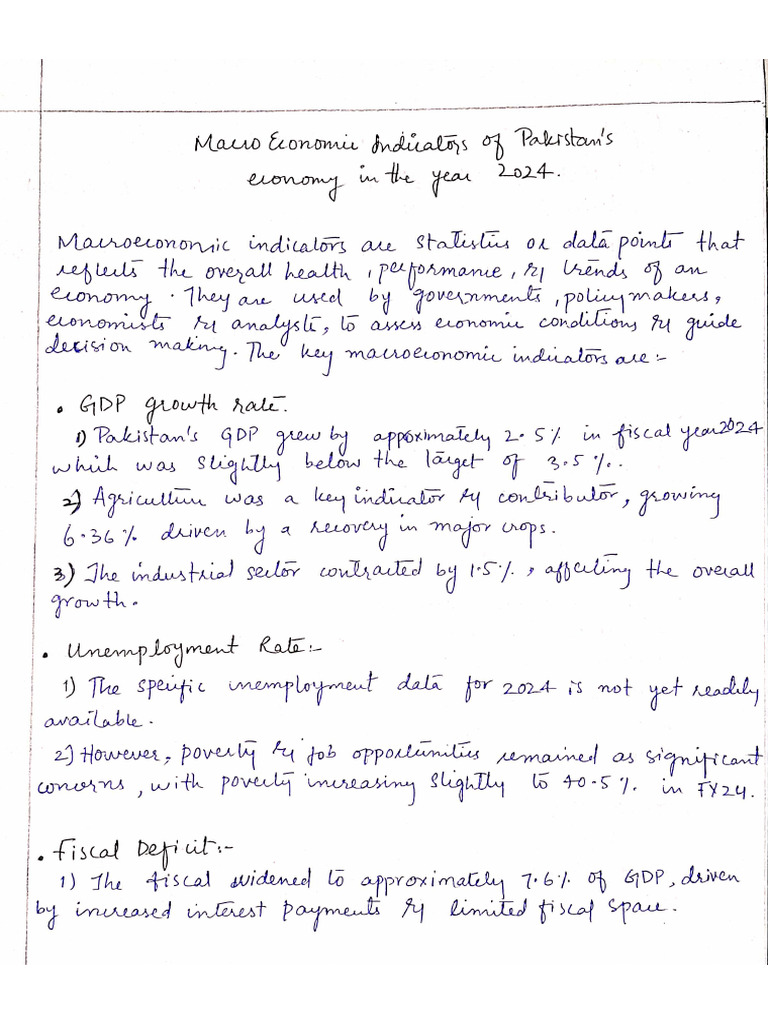 Macro Economic Indicators of Pakistan's
economy in the year 2024.
Macroeconomic indicators are statistics or data points that
reflects the overall health, performance, & trends of an
economy. They are used by governments, policymakers,
economists & analysts, to assess economic conditions & guide
decision making. The key macroeconomic indicators are:-
• GDP growth rate.
1) Pakistan's GDP grew by approximately 2.5% in fiscal year 2024
which was slightly below the target of 3.5%.
2) Agriculture was a key indicator & contributor, growing
6.36% driven by a recovery in major crops.
3) The industrial sector contracted by 1.5%, affecting the overall
growth.
• Unemployment Rate:-
1) The specific unemployment data for 2024 is not yet readily
available.
2) However, poverty & job opportunities remained as significant
concerns, with poverty increasing slightly to 40.5% in FY24.
• Fiscal Deficit:-
1) The fiscal widened to approximately 7.6% of GDP, driven
by increased interest payments & limited fiscal space.